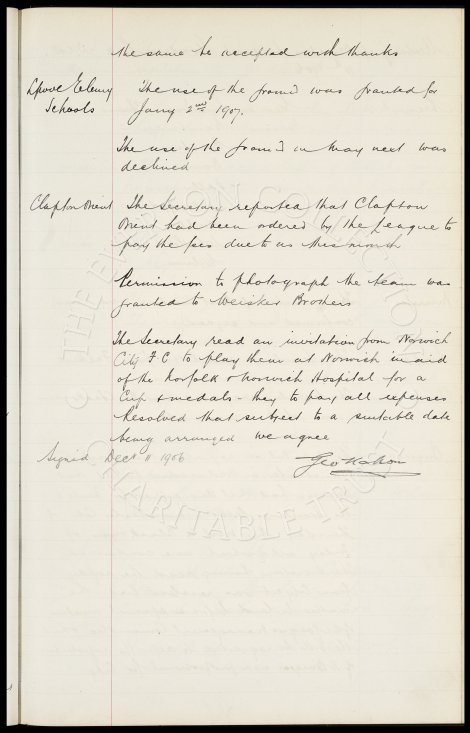 the same be accepted with thanks
L'pool Elemy
Schools
The use of the ground was granted for
Jany 2nd 1907.
The use of the ground in May next was
declined
Clapton Orient
The Secretary reported that Clapton
Orient had been ordered by the League to
pay the fees due to us this month
Permission to photograph the team was
granted to Weisker Brothers
The Secretary read an invitation from Norwich
City F C to play them at Norwich in aid
of the Norfolk & Norwich Hospital for a
Cup & medals - they to pay all expenses
Resolved that subject to a suitable date
being arranged we agree
Signed Decr 11 1906
Geo Mahon
THE EVERTON COLLECTION
CHARITABLE TRUST